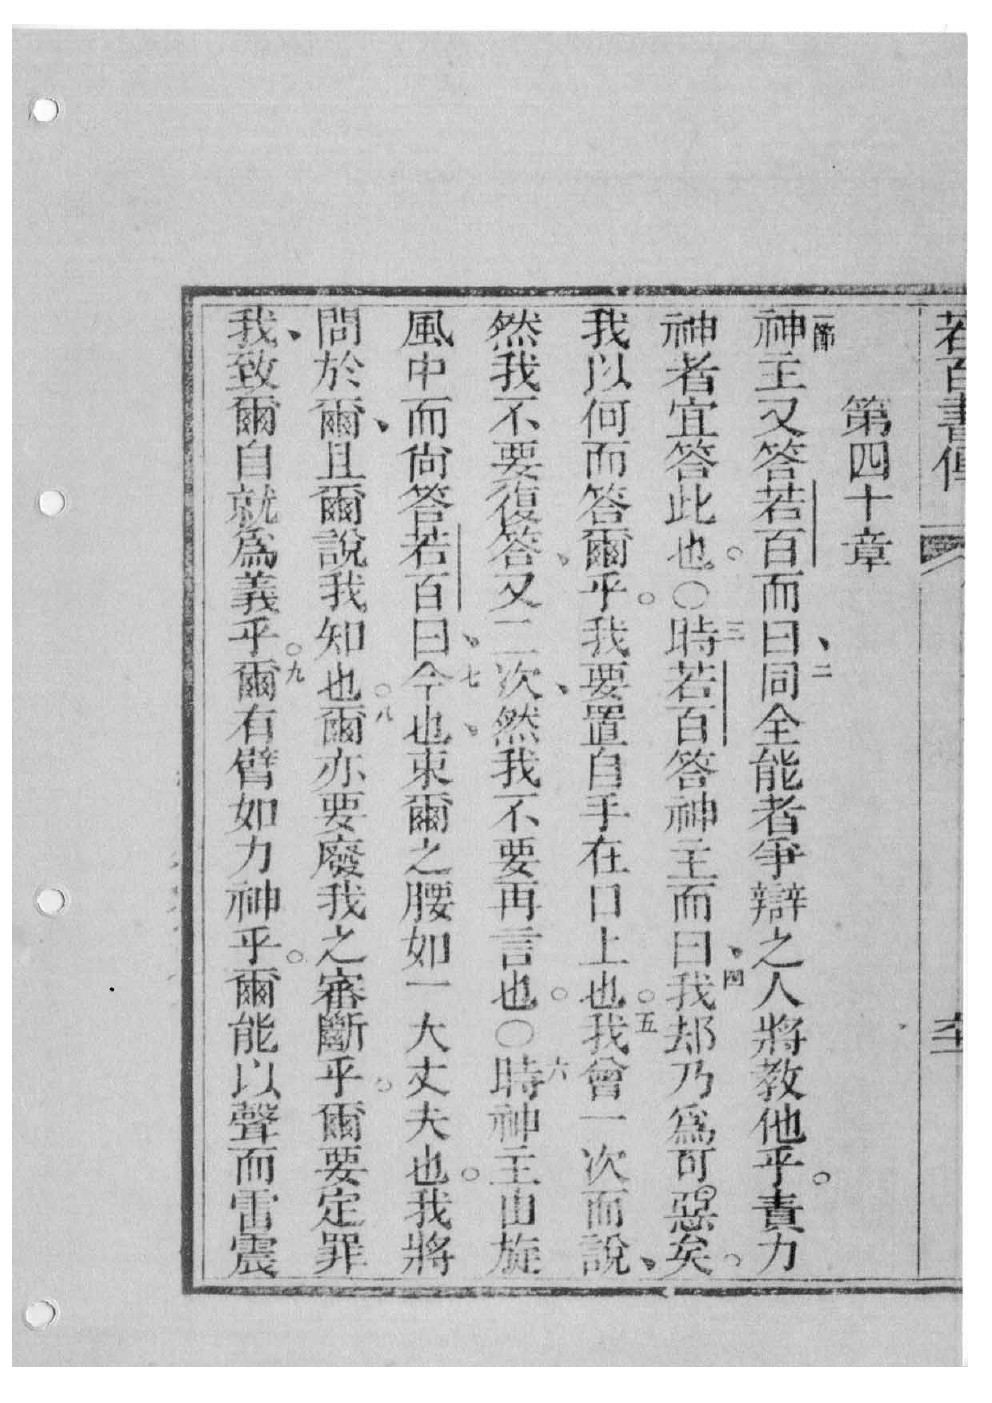 若百書傳
第四十章
一節神主又答若百而曰、二同全能者爭辯之人將教他乎。責力
神者宜答此也。○三時若百答神主而曰、四我却乃爲可惡矣。
我以何而答爾乎。我要置自手在口上也。五我曾一次而說、
然我不要復答、又二次、然我不要再言也。○六時神主由旋
風中而尙答若百曰、七今也、束爾之腰如一大丈夫也。我將
問於爾、且爾說我知也。八爾亦要廢我之審斷乎。爾要定罪
我、致爾自就爲義乎。九爾有臂如力神乎。爾能以聲而雷震